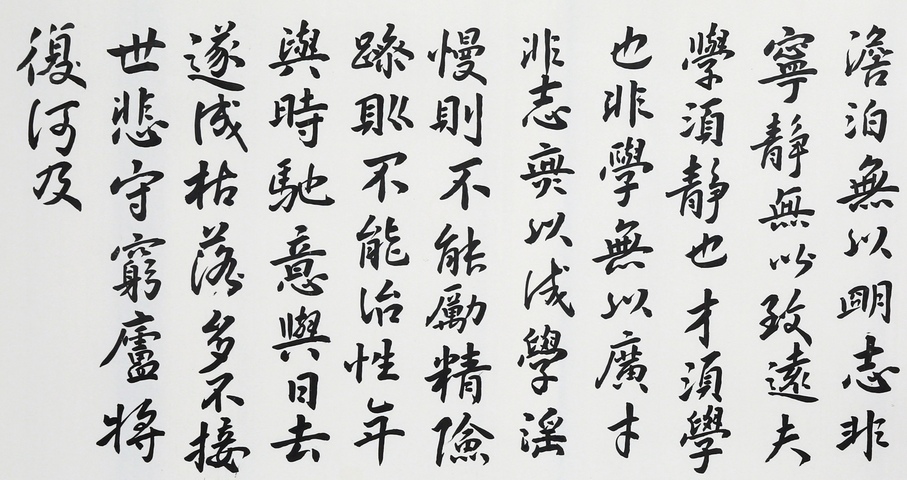 澹泊無以明志非
寧靜無以致遠夫
學須靜也才須學
也非學無以廣才
非志無以成學淫
慢則不能勵精險
躁則不能治性年
與時馳意與日去
遂成枯落多不接
世悲守窮廬將
復何及